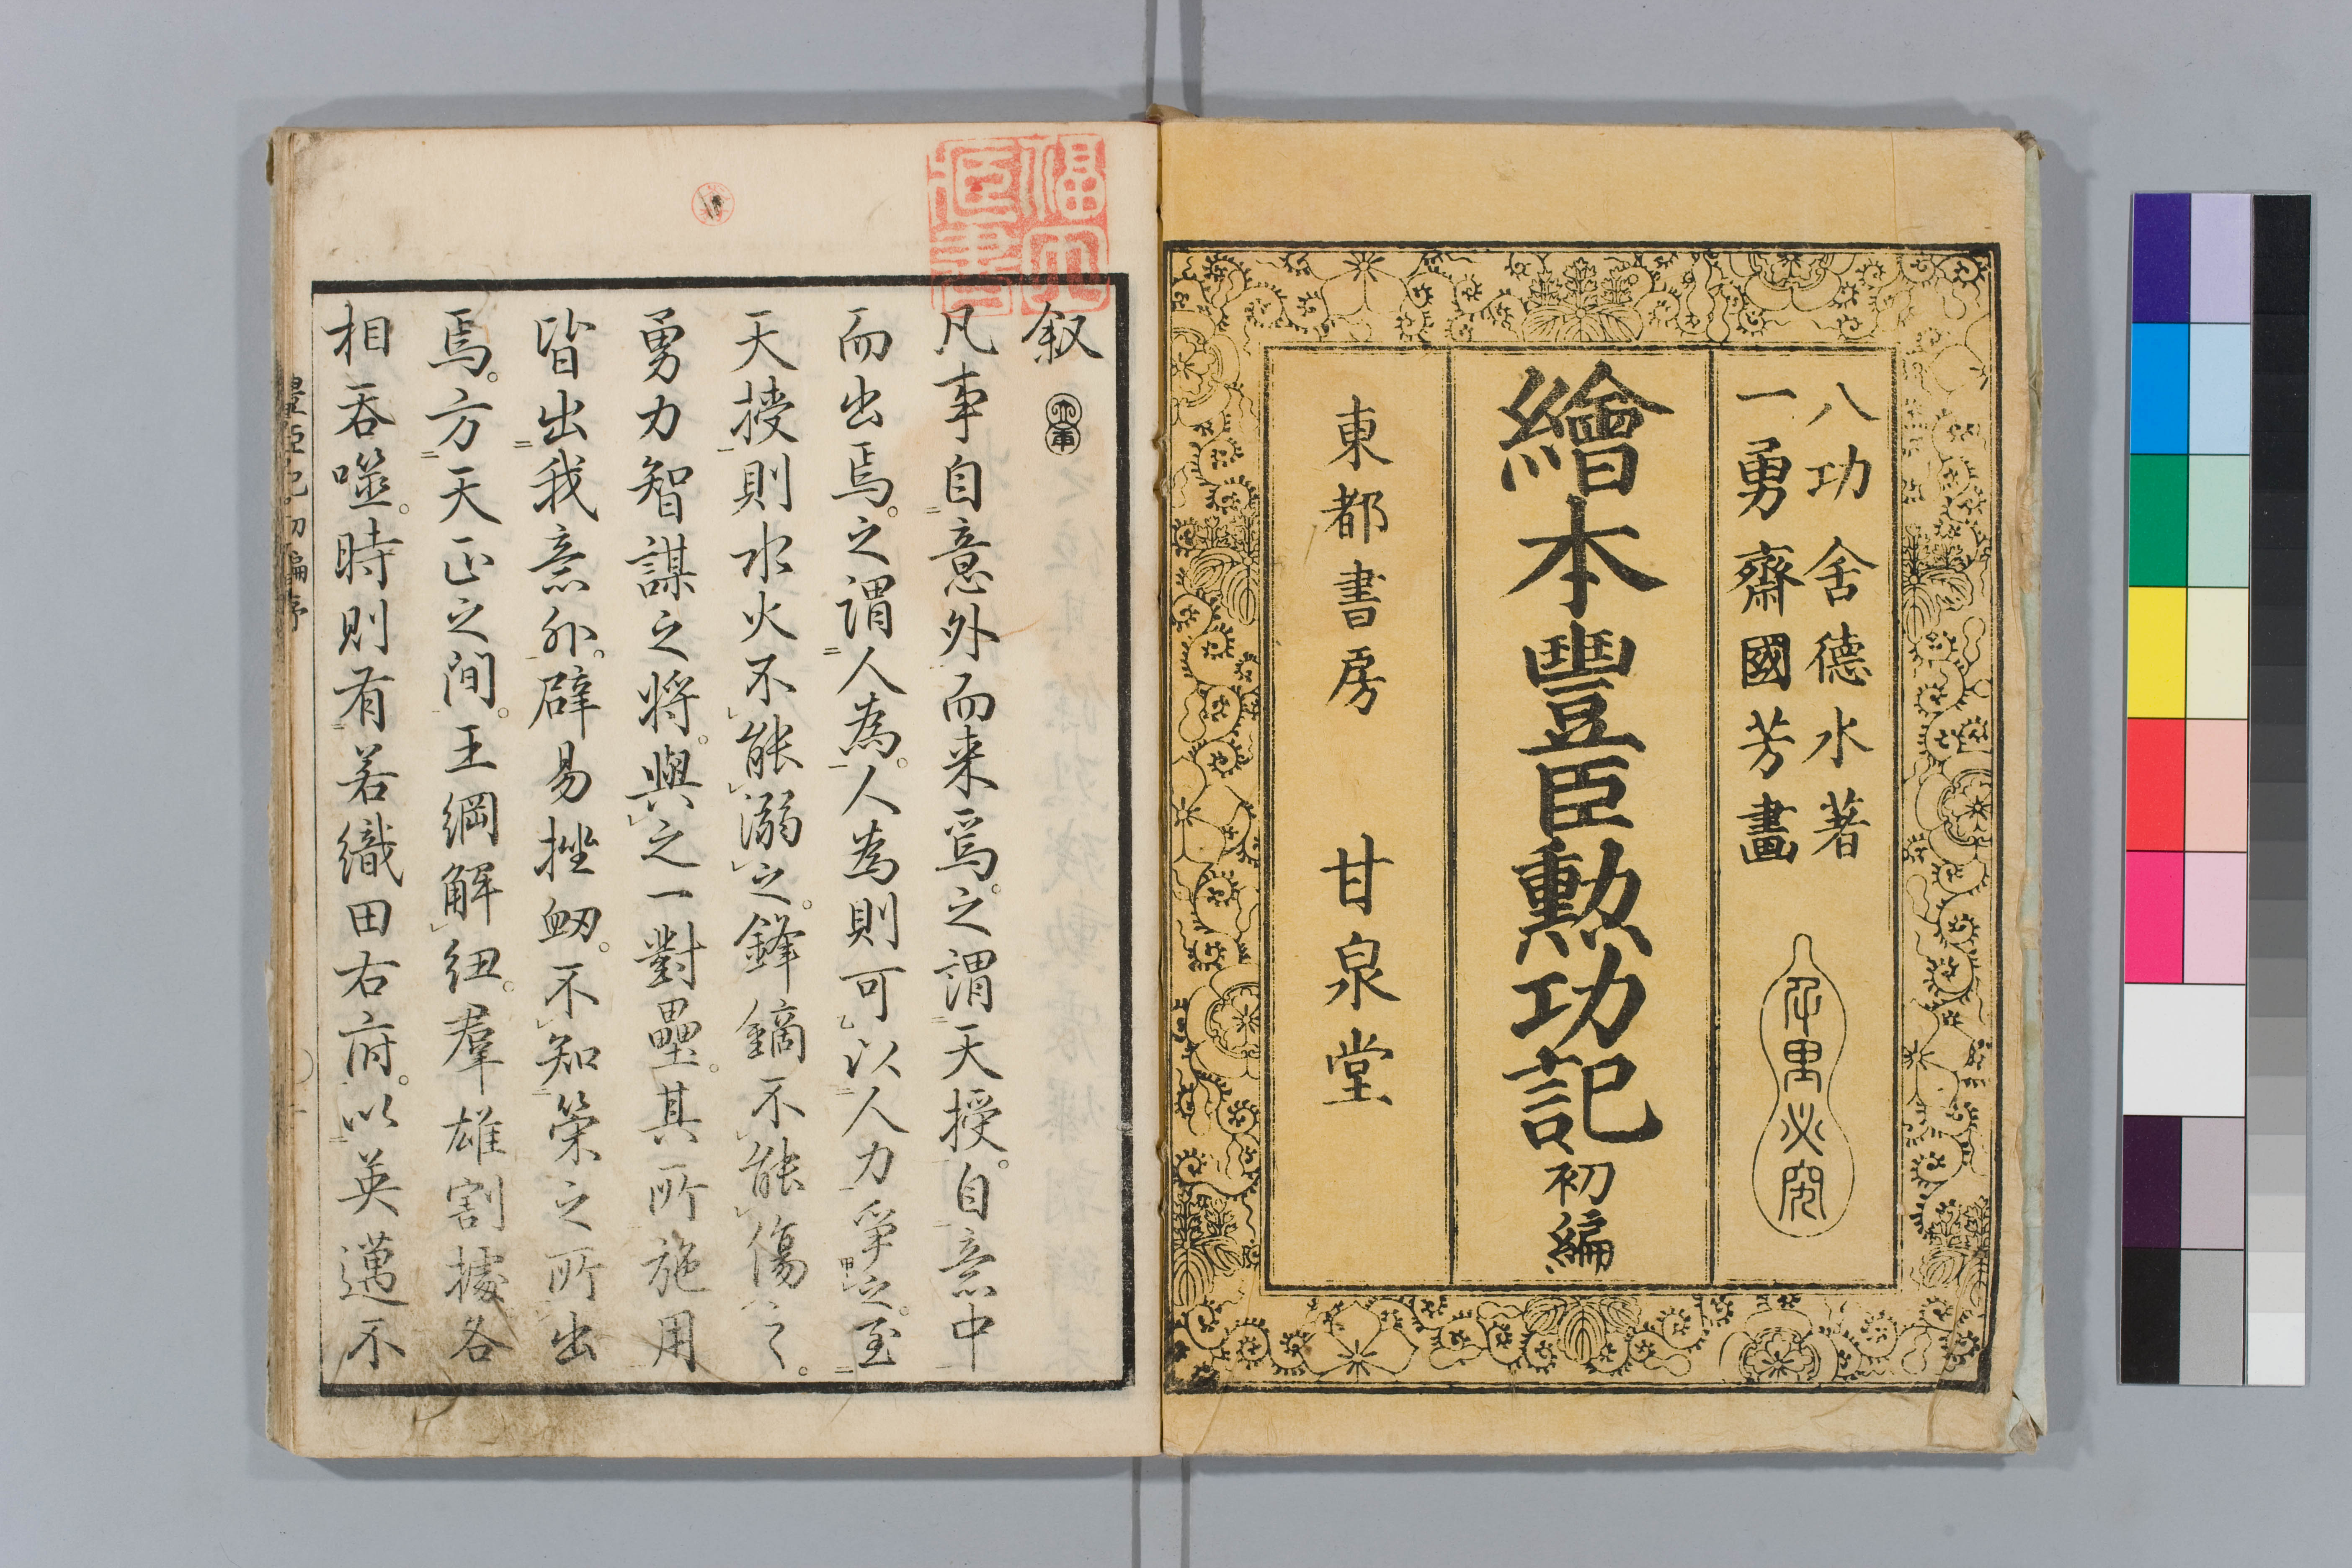 八功舍德水著
一勇齋國芳畫
千里必究
繪本豐臣勲功記初編
東都書房　甘泉堂
叙
凡事自意外而来焉。之謂天授。自意中
而出焉。之謂人為。人為則可以人力爭之。至
天授則水火不能溺之。鋒鏑不能傷之。
勇力智謀之将。與之一對壘。其所施用
皆出我意外。辟易挫衂。不知策之所出
焉。方天正之間。王綱解紐。羣雄割據各
相吞噬。時則有若織田右府。以英邁不
豐臣記初編序